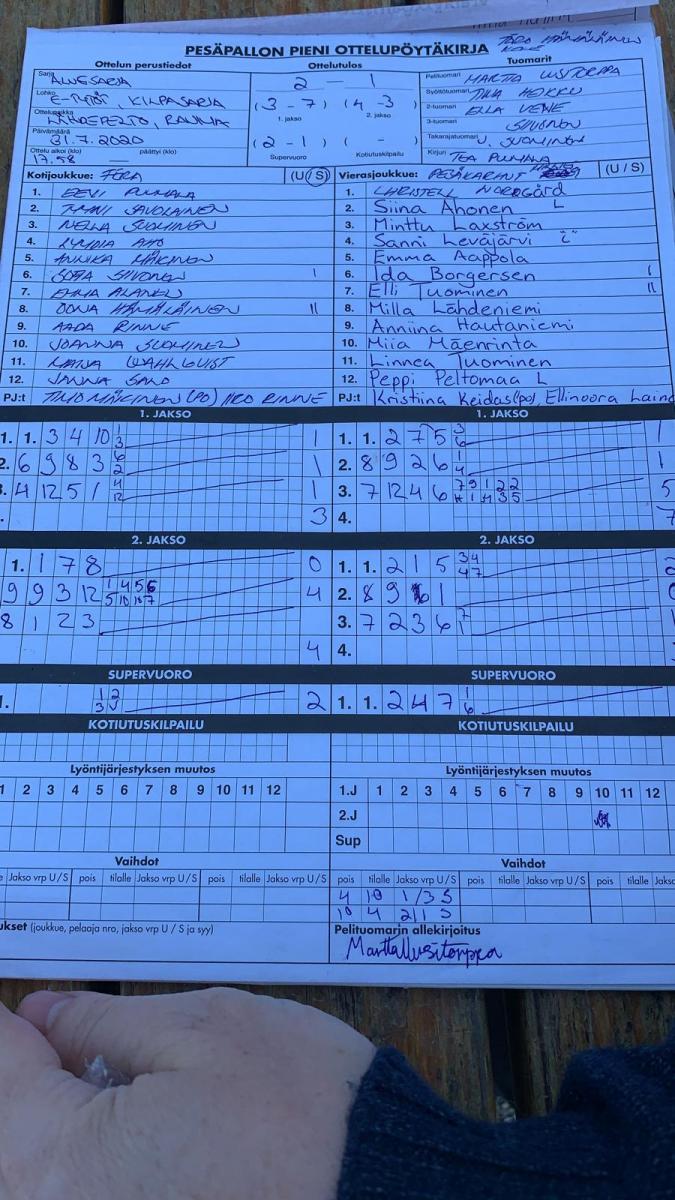 PESÄPALLON PIENI OTTELUPÖYTÄKIRJA
Ottelun perustiedot Ottelutulos Tuomarit
Sarja ALUESARJA 2 - 1 Pelituomari MARTTA LUSITORPPA
Lohko E-TYTÖT, KILPASARJA (3 - 7) (4 - 3) Syöttötuomari TIINA
Ottelupaikka RAUMA 1. jakso 2. jakso 2-tuomari ELLA
Päivämäärä 31.7.2020 (2 - 1) ( - ) 3-tuomari SIIVONEN
Ottelu alkoi (klo) 17.58 päättyi (klo) — Supervuoro Kotiutuskilpailu Takarajatuomari V. SUOMINEN
Kirjuri TEA PUHALA
Kotijoukkue: FERA (U/S) Vierasjoukkue: PESÄKARHUT (U / S)
1. EEVI PUHALA 1. CHRISTELL NORDGÅRD
2. SAVOLAINEN 2. Siina Ahonen L
3. NELLA SUOMINEN 3. Minttu Laxström
4. LYYDIA AHO 4. Sanni Leväjärvi
5. ANNIKA MÄKINEN 5. Emma Aappola
6. SOFIA SIIVONEN I 6. Ida Borgersen I
7. EMMA ALANEN 7. Elli Tuominen II
8. OONA HÄMÄLÄINEN II 8. Milla Lähdeniemi
9. AADA RINNE 9. Anniina Hautaniemi
10. JOANNA SUOMINEN 10. Miia Mäenrinta
11. WAHLQVIST 11. Linnea Tuominen
12. JANNA SALO 12. Peppi Peltomaa L
PJ:t TIMO MÄKINEN (PO) IIRO RINNE PJ:t Kristiina Keidas(po), Ellinoora Laine
1. JAKSO 1. JAKSO
1. 1. 3 4 10 1 3 1 1. 1. 2 7 5 3 6 1
2. 6 9 8 3 6 2 1 2. 8 9 2 6 1 4 1
3. 4 12 5 1 4 12 1 3. 7 12 4 6 7 9 1 2 2 5
3 4. 7
2. JAKSO 2. JAKSO
1. 1 7 8 0 1. 1. 2 1 5 3 4 4 7 2
9 9 3 12 1 4 5 6 5 10 7 4 2. 8 9 1
8 1 2 3 3. 7 2 3 6 7 1 1
4 4.
SUPERVUORO SUPERVUORO
1. 1 2 3 2 1. 1. 2 4 7 1 6
KOTIUTUSKILPAILU KOTIUTUSKILPAILU
Lyöntijärjestyksen muutos Lyöntijärjestyksen muutos
1 2 3 4 5 6 7 8 9 10 11 12 1.J 1 2 3 4 5 6 7 8 9 10 11 12
2.J
Sup
Vaihdot Vaihdot
Jakso vrp U/S pois tilalle Jakso vrp U/S pois tilalle Jakso vrp U/S pois tilalle Jakso vrp U/S pois tilalle Jakso vrp U/S pois tilalle Jakso
4 10 1/3 S
10 4 2/1 S
ukset (joukkue, pelaaja nro, jakso vrp U / S ja syy) Pelituomarin allekirjoitus
Martta Lusitorppa